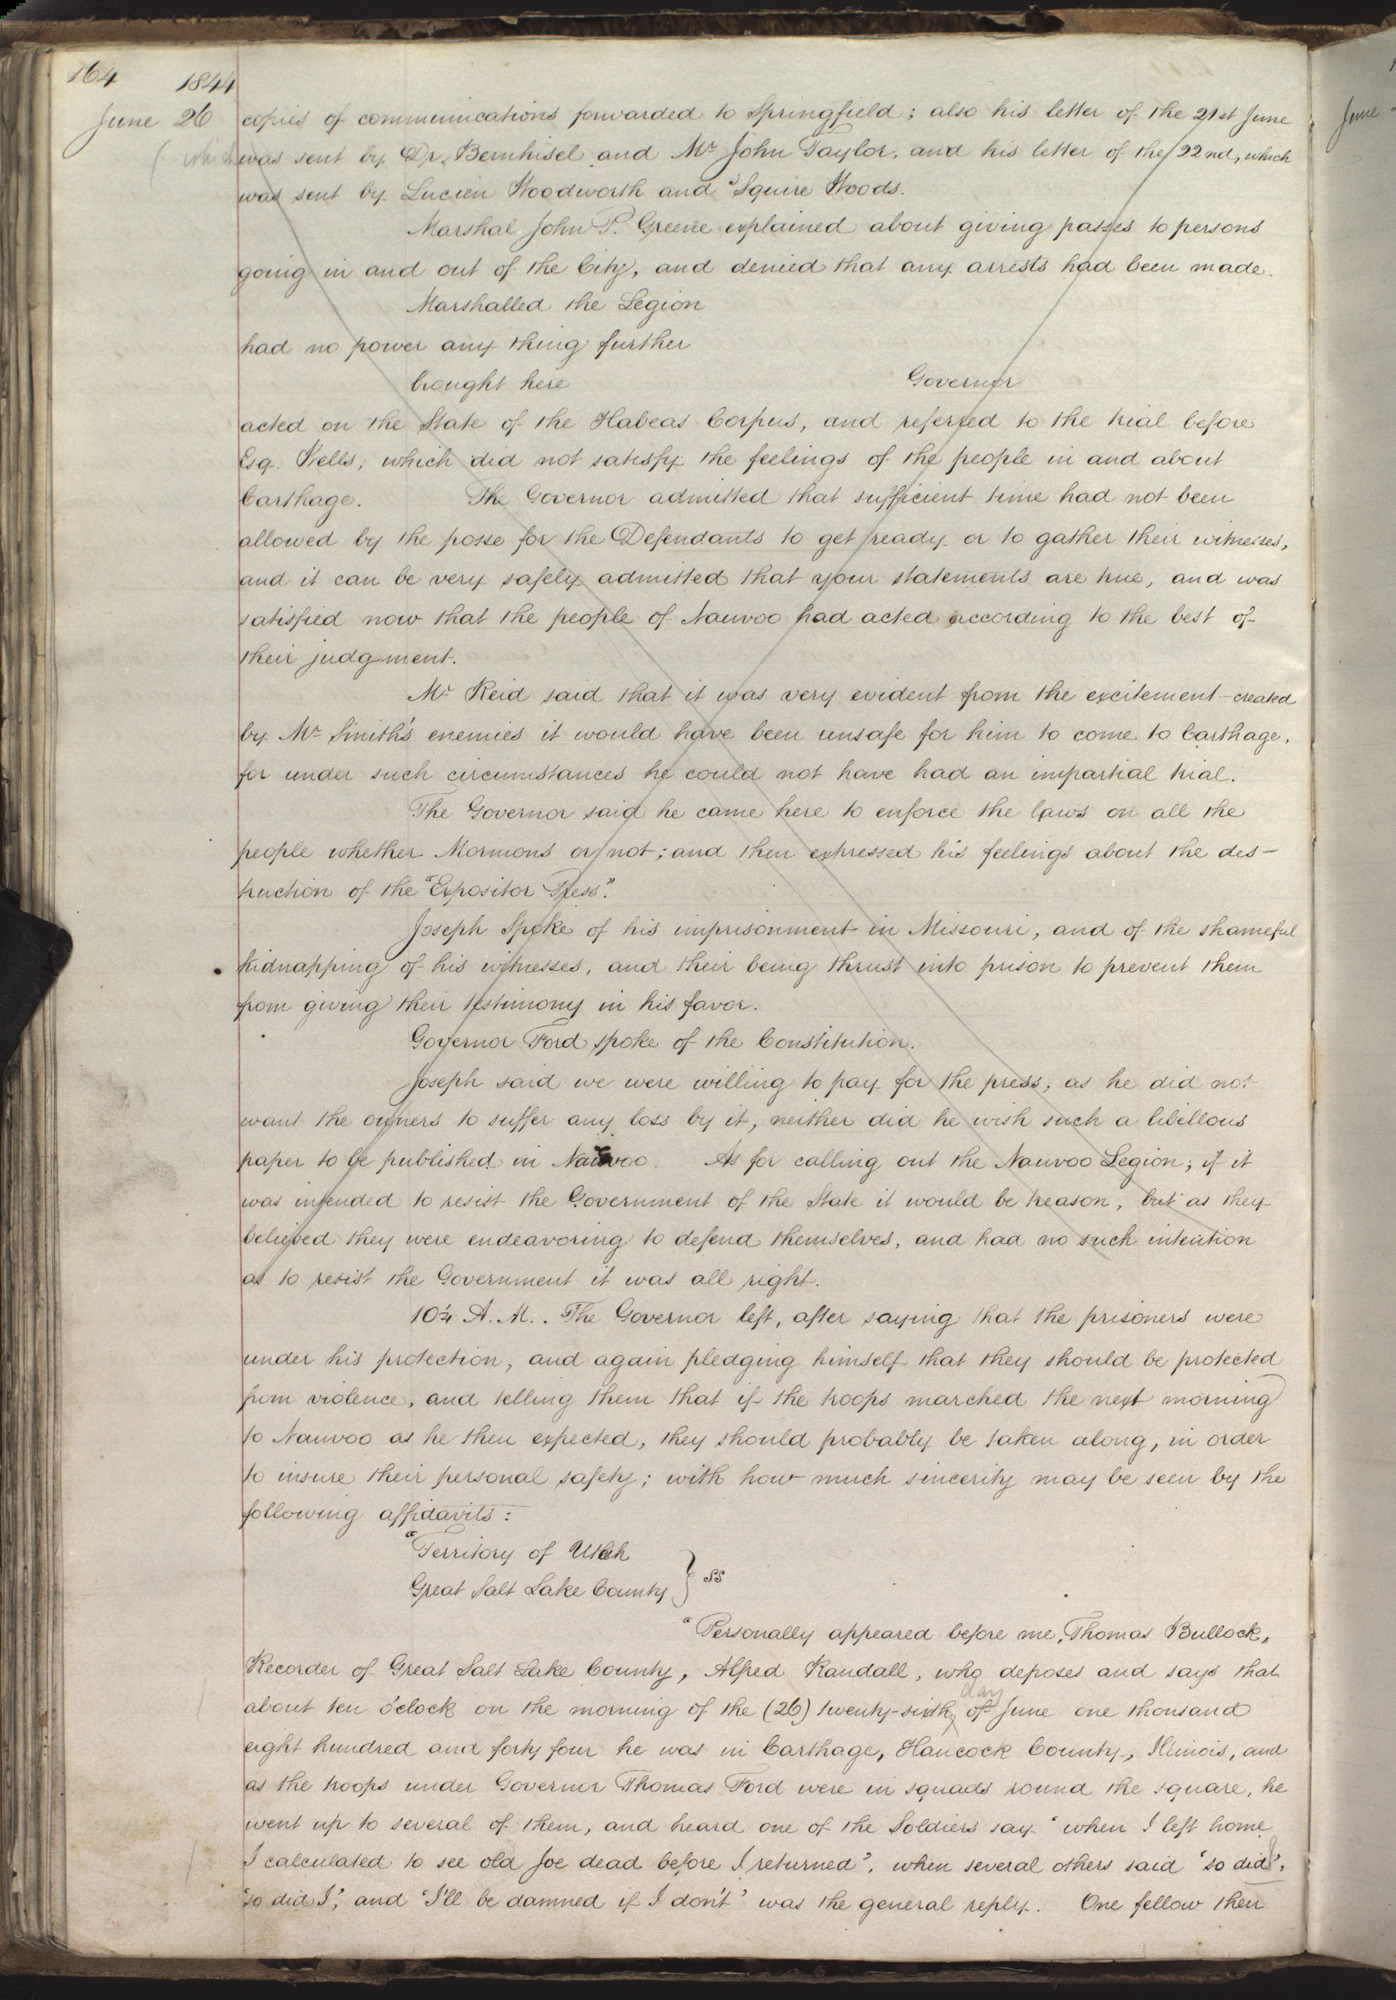 164 1844
June 26 copies of communications forwarded to Springfield; also his letter of the 21st June
( which was sent by Dr. Bernhisel and Mr John Taylor, and his letter of the 22nd, which
was sent by Lucien Woodworth and Squire Woods.
Marshal John P. Greene explained about giving passes to persons
going in and out of the City, and denied that any arrests had been made.
Marshalled the Legion
had no power any thing further
brought here Governor
acted on the State of the Habeas Corpus, and referred to the trial before
Esq. Wells, which did not satisfy the feelings of the people in and about
Carthage. The Governor admitted that sufficient time had not been
allowed by the posse for the Defendants to get ready or to gather their witnesses,
and it can be very safely admitted that your statements are true, and was
satisfied now that the people of Nauvoo had acted according to the best of
their judgment.
Mr Reid said that it was very evident from the excitement created
by Mr Smith's enemies it would have been unsafe for him to come to Carthage,
for under such circumstances he could not have had an impartial trial.
The Governor said he came here to enforce the laws on all the
people whether Mormons or not; and then expressed his feelings about the des-
truction of the "Expositor Press".
Joseph Spoke of his imprisonment in Missouri, and of the shameful
kidnapping of his witnesses, and their being thrust into prison to prevent them
from giving their testimony in his favor.
Governor Ford spoke of the Constitution.
Joseph said we were willing to pay for the press, as he did not
want the owners to suffer any loss by it, neither did he wish such a libellous
paper to be published in Nauvoo. As for calling out the Nauvoo Legion; if it
was intended to resist the Government of the State it would be treason, but as they
believed they were endeavoring to defend themselves, and had no such intention
as to resist the Government it was all right.
10¼ A.M.. The Governor left, after saying that the prisoners were
under his protection, and again pledging himself that they should be protected
from violence, and telling them that if the troops marched the next morning
to Nauvoo as he then expected, they should probably be taken along, in order
to insure their personal safety; with how much sincerity may be seen by the
following affidavits:
"Territory of Utah
Great Salt Lake County } ss
"Personally appeared before me, Thomas Bullock,
Recorder of Great Salt Lake County, Alfred Randall, who deposes and says that
day
about ten o'clock on the morning of the (26) twenty-sixth of June one thousand
eight hundred and forty four he was in Carthage, Hancock County, Illinois, and
as the troops under Governor Thomas Ford were in squads round the square, he
went up to several of them, and heard one of the Soldiers say "when I left home
I calculated to see old Joe dead before I returned", when several others said "so did I",
"so did I", and "I'll be damned if I don't" was the general reply. One fellow then
June